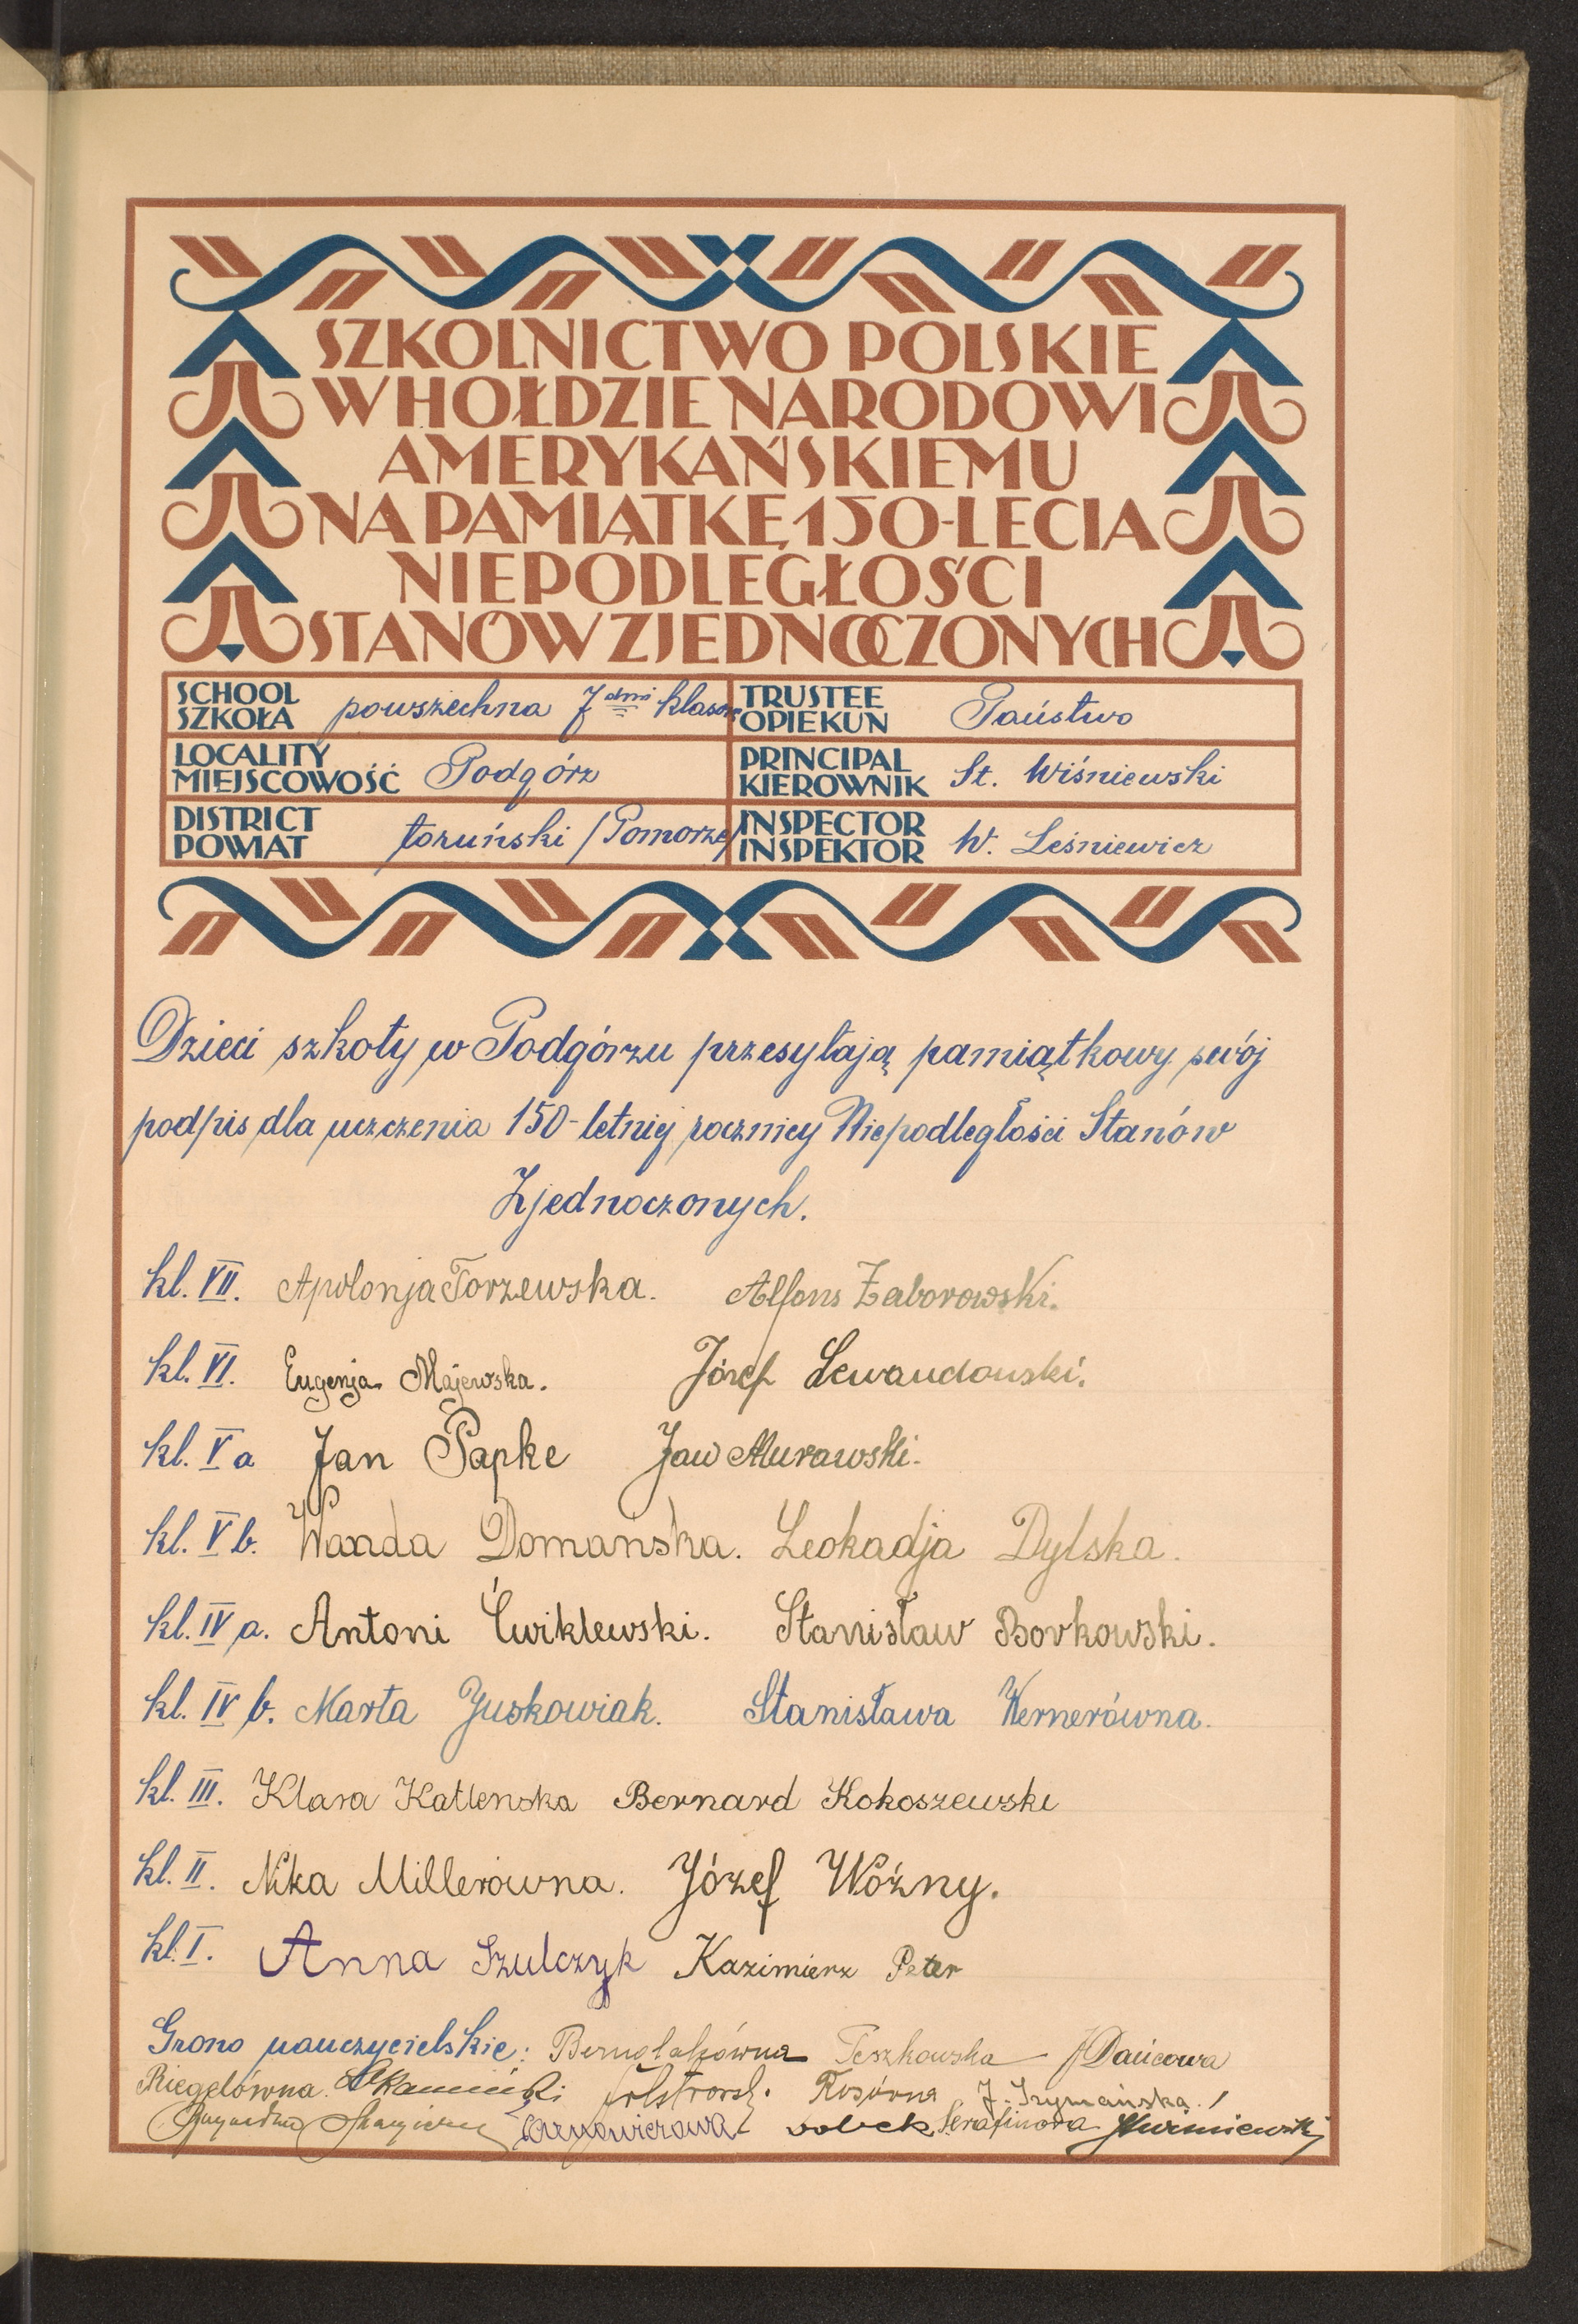 SZKOLNICTWO POLSKIE
W HOŁDZIE NARODOWI
AMERYKAŃSKIEMU
NA PAMIĄTKĘ 150-LECIA
NIEPODLEGŁOŚCI
STANÓW ZJEDNOCZONYCH
SCHOOL
SZKOŁA powszechna 7 dmi klasowa
TRUSTEE
OPIEKUN Państwo
LOCALITY
MIEJSCOWOŚĆ Podgórz
PRINCIPAL
KIEROWNIK St. Wiśniewski
DISTRICT
POWIAT toruński /Pomorze/
INSPECTOR
INSPEKTOR W. Leśniewicz
Dzieci szkoły w Podgórzu przesyłają pamiątkowy swój
podpis dla uczczenia 150-letniej rocznicy Niepodległości Stanów
Zjednoczonych.
kl. VII. Apolonja Torzewska. Alfons Zaborowski.
kl. VI. Eugenja Majewska. Józef Lewandowski.
kl. V a Jan Papke Jan Murawski.
kl. V b. Wanda Domańska. Leokadja Dylska.
kl. IV a. Antoni Ćwiklewski. Stanisław Borkowski.
kl. IV b. Marta Juskowiak. Stanisława Wernerówna.
kl. III. Klara Katlenska Bernard Kokoszewski
kl. II. Nka Millerówna. Józef Woźny.
kl. I. Anna Szulczyk Kazimierz Peter
Grono nauczycielskie: Teszkowska Dańcowa
Riegelówna. Kamiński Rosówna J. Szymańska
Sobek Serafinowa